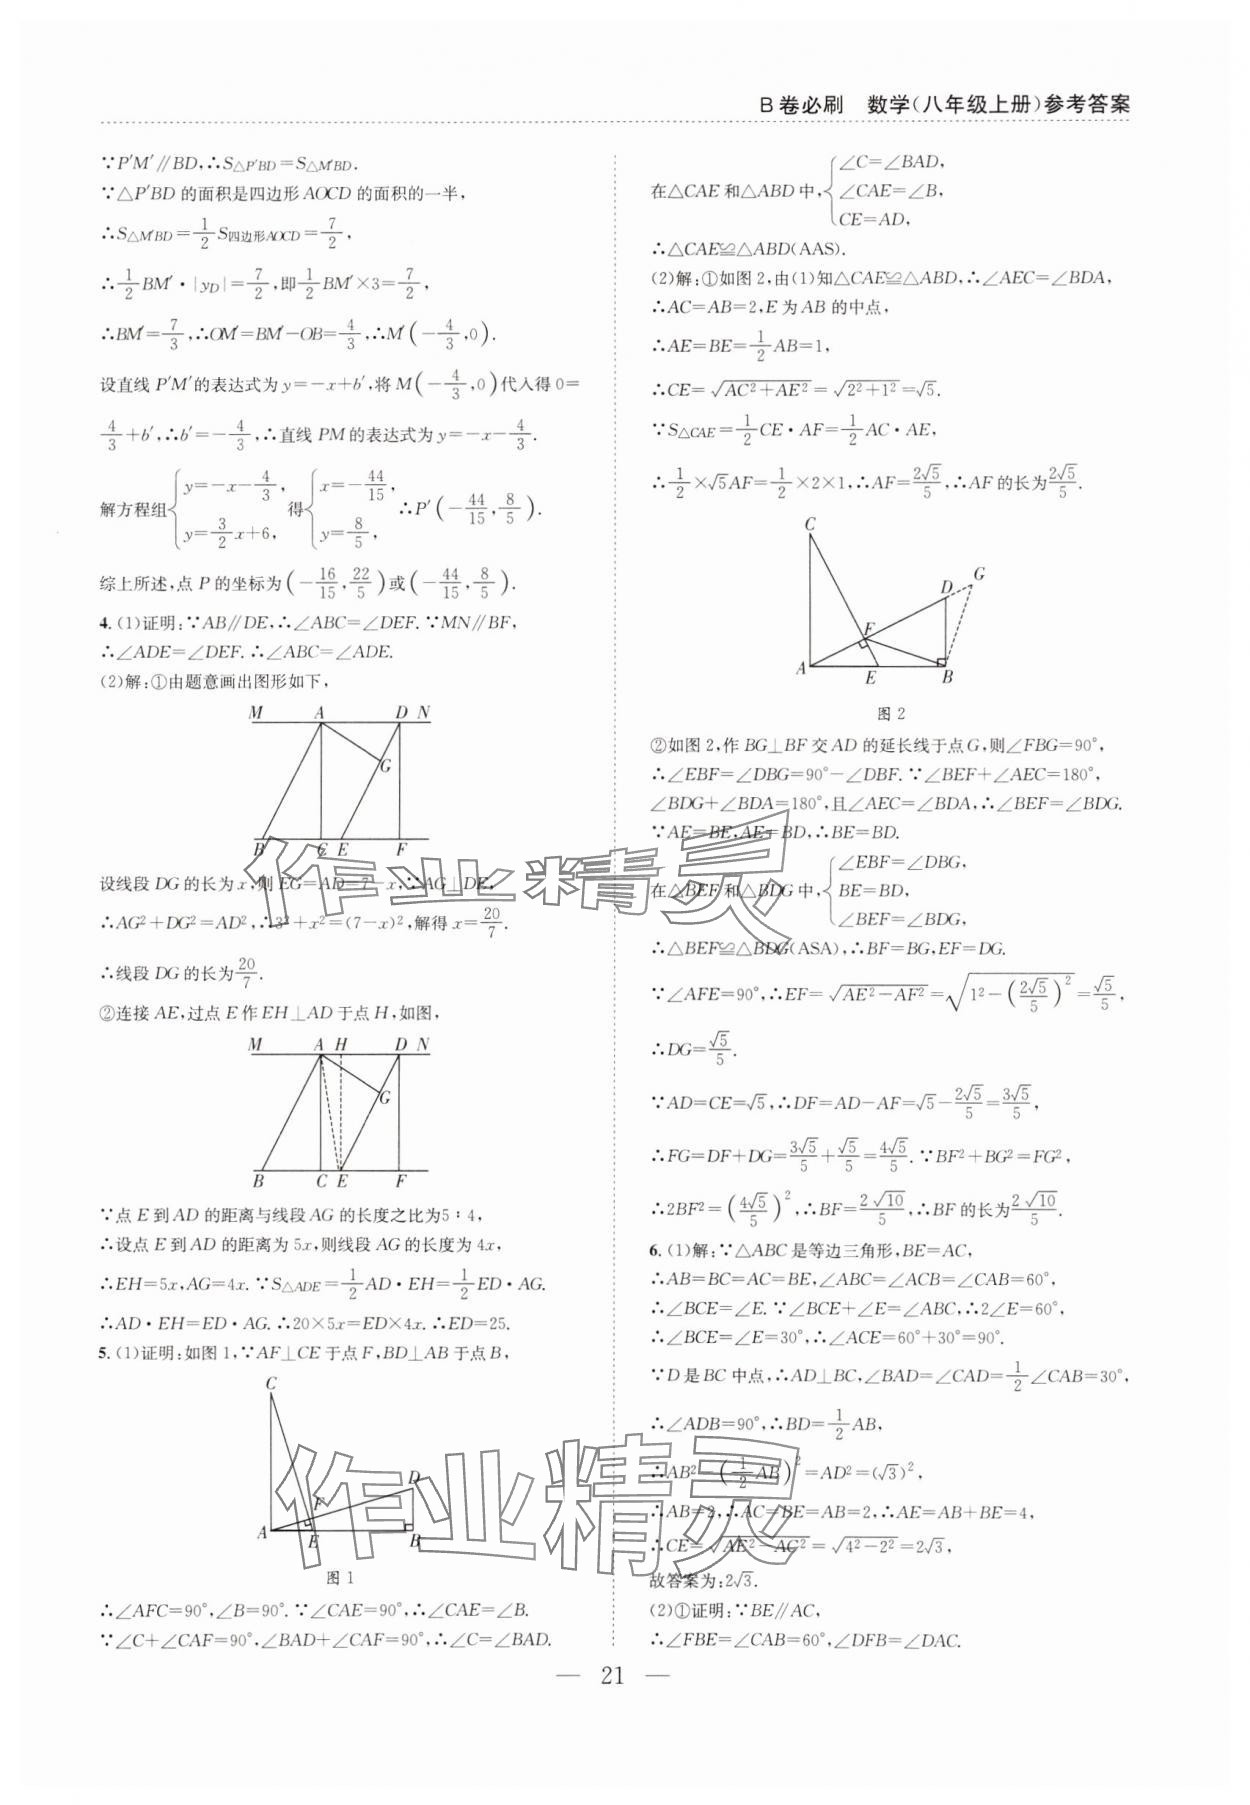 B卷必刷 数学(八年级上册)参考答案
∵P′M′∥BD,∴S△P′BD=S△M′BD.
∵△P′BD 的面积是四边形 AOCD 的面积的一半,
∴S△M′BD=1/2 S四边形AOCD=7/2,
∴1/2 BM′·|yD|=7/2,即1/2 BM′×3=7/2,
∴BM′=7/3,∴OM′=BM′-OB=4/3,∴M′(-4/3,0).
设直线 P′M′的表达式为 y=-x+b′,将 M(-4/3,0)代入得 0=
4/3+b′,∴b′=-4/3,∴直线 PM 的表达式为 y=-x-4/3.
解方程组{y=-x-4/3, y=3/2 x+6, 得{x=-44/15, y=8/5, ∴P′(-44/15,8/5).
综上所述,点 P 的坐标为(-16/15,22/5)或(-44/15,8/5).
4.(1)证明:∵AB∥DE,∴∠ABC=∠DEF.∵MN∥BF,
∴∠ADE=∠DEF.∴∠ABC=∠ADE.
(2)解:①由题意画出图形如下,
M A D N
G
B C E F
设线段 DG 的长为 x,则 EG=AD=7-x,∵AG⊥DE,
∴AG²+DG²=AD²,∴3²+x²=(7-x)²,解得 x=20/7.
∴线段 DG 的长为20/7.
②连接 AE,过点 E 作 EH⊥AD 于点 H,如图,
M A H D N
G
B C E F
∵点 E 到 AD 的距离与线段 AG 的长度之比为5∶4,
∴设点 E 到 AD 的距离为 5x,则线段 AG 的长度为 4x,
∴EH=5x,AG=4x.∵S△ADE=1/2 AD·EH=1/2 ED·AG.
∴AD·EH=ED·AG.∴20×5x=ED×4x.∴ED=25.
5.(1)证明:如图 1,∵AF⊥CE 于点 F,BD⊥AB 于点 B,
C
D
F
A E B
图 1
∴∠AFC=90°,∠B=90°.∵∠CAE=90°,∴∠CAE=∠B.
∵∠C+∠CAF=90°,∠BAD+∠CAF=90°,∴∠C=∠BAD.
在△CAE 和△ABD 中,{∠C=∠BAD, ∠CAE=∠B, CE=AD,
∴△CAE≌△ABD(AAS).
(2)解:①如图 2,由(1)知△CAE≌△ABD,∴∠AEC=∠BDA,
∴AC=AB=2,E 为 AB 的中点,
∴AE=BE=1/2 AB=1,
∴CE=√(AC²+AE²)=√(2²+1²)=√5.
∵S△CAE=1/2 CE·AF=1/2 AC·AE,
∴1/2×√5AF=1/2×2×1,∴AF=2√5/5,∴AF 的长为2√5/5.
C
D G
F
A E B
图 2
②如图 2,作 BG⊥BF 交 AD 的延长线于点 G,则∠FBG=90°,
∴∠EBF=∠DBG=90°-∠DBF.∵∠BEF+∠AEC=180°,
∠BDG+∠BDA=180°,且∠AEC=∠BDA,∴∠BEF=∠BDG.
∵AE=BE,AE=BD,∴BE=BD.
在△BEF 和△BDG 中,{∠EBF=∠DBG, BE=BD, ∠BEF=∠BDG,
∴△BEF≌△BDG(ASA),∴BF=BG,EF=DG.
∵∠AFE=90°,∴EF=√(AE²-AF²)=√(1²-(2√5/5)²)=√5/5,
∴DG=√5/5.
∵AD=CE=√5,∴DF=AD-AF=√5-2√5/5=3√5/5,
∴FG=DF+DG=3√5/5+√5/5=4√5/5.∵BF²+BG²=FG²,
∴2BF²=(4√5/5)²,∴BF=2√10/5,∴BF 的长为2√10/5.
6.(1)解:∵△ABC 是等边三角形,BE=AC,
∴AB=BC=AC=BE,∠ABC=∠ACB=∠CAB=60°,
∴∠BCE=∠E.∵∠BCE+∠E=∠ABC,∴2∠E=60°,
∴∠BCE=∠E=30°,∴∠ACE=60°+30°=90°.
∵D 是 BC 中点,∴AD⊥BC,∠BAD=∠CAD=1/2∠CAB=30°,
∴∠ADB=90°,∴BD=1/2 AB,
∴AB²-(1/2 AB)²=AD²=(√3)²,
∴AB=2,∴AC=BE=AB=2,∴AE=AB+BE=4,
∴CE=√(AE²-AC²)=√(4²-2²)=2√3,
故答案为:2√3.
(2)①证明:∵BE∥AC,
∴∠FBE=∠CAB=60°,∠DFB=∠DAC.
— 21 —
作业精灵
作业精灵